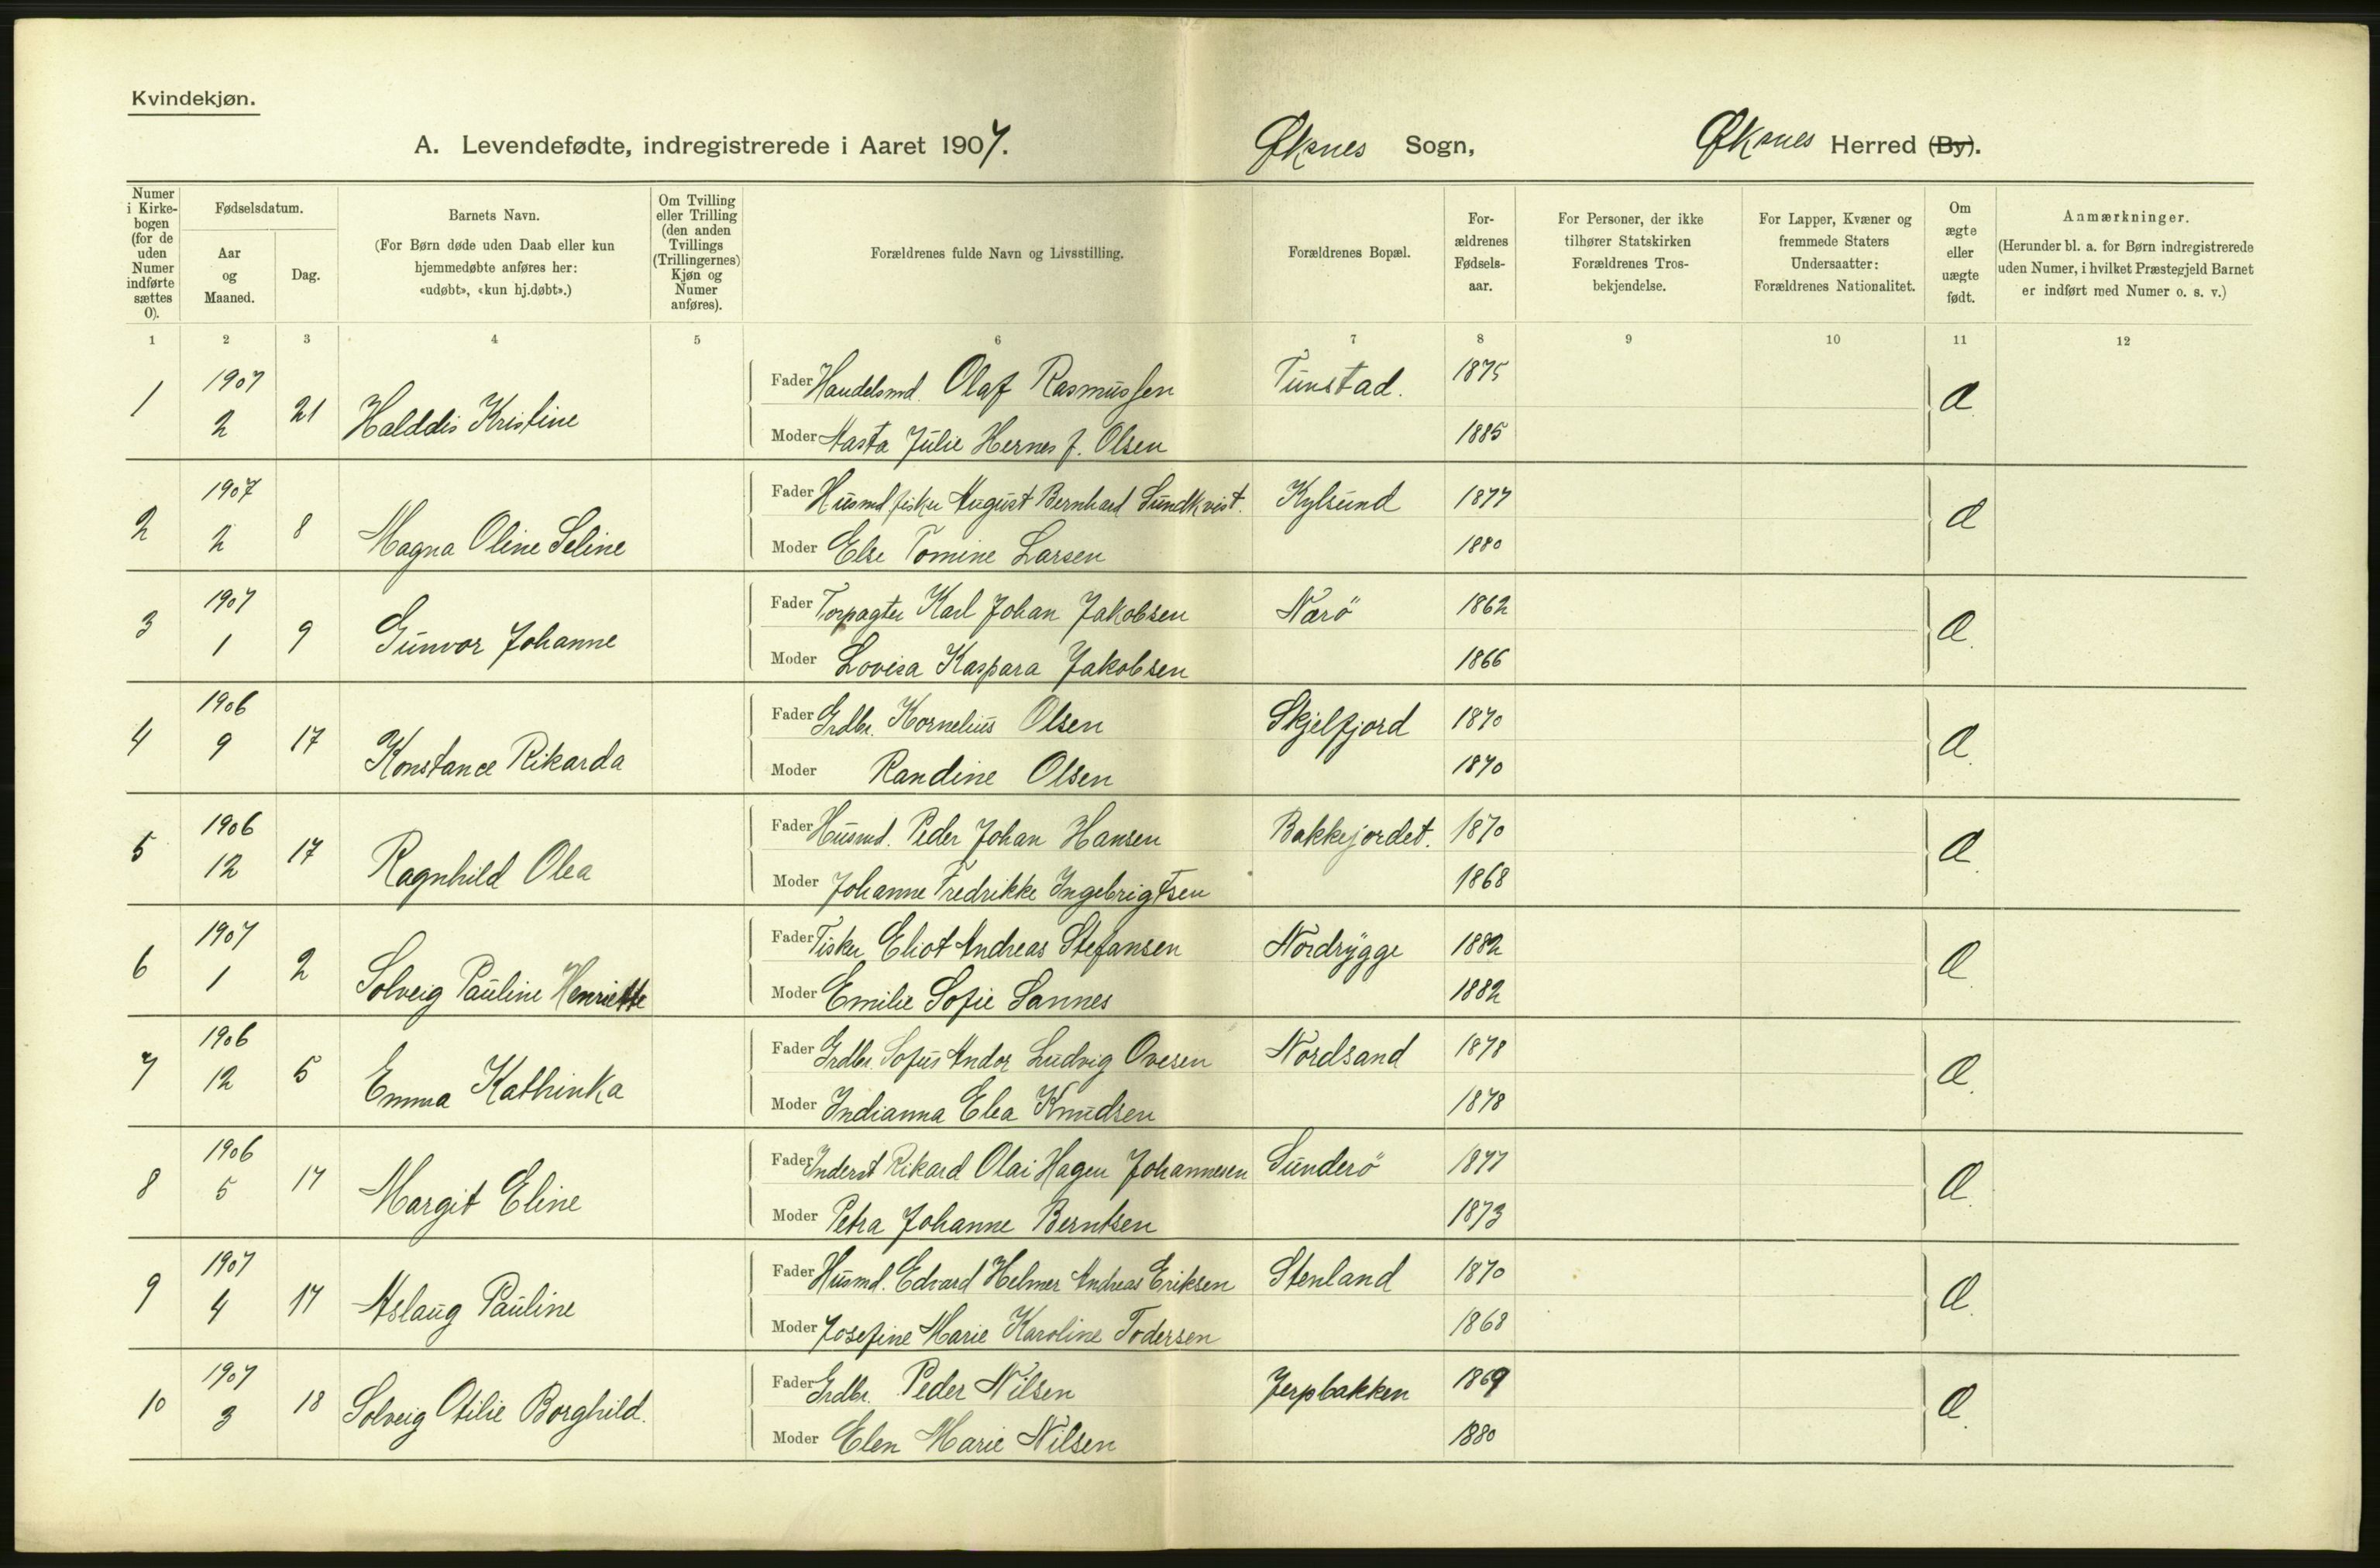 Kvindekjøn.
A. Levendefødte, indregistrerede i Aaret 1907. Øksnes Sogn, Øksnes Herred (By).
Numer i Kirkebogen (for de uden Numer indførte sættes 0).
Fødselsdatum.
Aar og Maaned.
Dag.
Barnets Navn.
(For Børn døde uden Daab eller kun
hjemmedøbte anføres her:
«udøbt», «kun hj.døbt».)
Om Tvilling
eller Trilling
(den anden
Tvillings
(Trillingernes)
Kjøn og
Numer
anføres).
Forældrenes fulde Navn og Livsstilling.
Forældrenes Bopæl.
For-
ældrenes
Fødsels-
aar.
For Personer, der ikke
tilhører Statskirken
Forældrenes Tros-
bekjendelse.
For Lapper, Kvæner og
fremmede Staters
Undersaatter:
Forældrenes Nationalitet.
Om
ægte
eller
uægte
født.
Anmærkninger.
(Herunder bl. a. for Børn indregistrerede
uden Numer, i hvilket Præstegjeld Barnet
er indført med Numer o. s. v.)
1 2 3 4 5 6 7 8 9 10 11 12
1 1907 2 21 Halddis Kristine
Fader Handelsmd. Olaf Rasmussen Tunstad. 1875 Æ
Moder Aasta Julie Hernes f. Olsen 1885
2 1907 2 8 Magna Oline Seline
Fader Husmd. fisker August Bernhard Sundkvist. Kylsund 1877 Æ
Moder Else Tomine Larsen 1880
3 1907 1 9 Gunvor Johanne
Fader Torpagter Karl Johan Jakobsen Nærö 1862 Æ.
Moder Lovisa Kaspara Jakobsen 1866
4 1906 9 17 Konstance Rikarda
Fader Grdbr. Kornelius Olsen Skjelfjord 1870 Æ.
Moder Randine Olsen 1870
5 1906 12 17 Ragnhild Olea
Fader Husmd. Peder Johan Hansen Bakkejordet. 1870 Æ.
Moder Johanne Fredrikke Ingebrigtsen 1868
6 1907 1 2 Solveig Pauline Henriette
Fader Fisker Eliot Andreas Stefansen Nordrygge 1882 Æ.
Moder Emilie Sofie Sannes 1882
7 1906 12 5 Emma Kathinka
Fader Grdbr. Sofus Andor Ludvig Ovesen Nordsand 1878 Æ.
Moder Indianna Elea Knudsen 1878
8 1906 5 17 Margit Eline
Fader Inderst Rikard Olai Hagen Johannesen Sunderö 1877 Æ.
Moder Petra Johanne Berntsen 1873
9 1907 4 17 Aslaug Pauline
Fader Husmd. Edvard Helmer Andreas Eriksen Stenland 1870 Æ.
Moder Josefine Marie Karoline Todersen 1868
10 1907 3 18 Solveig Otilie Borghild.
Fader Grdbr. Peder Nilsen Jerpbakken 1869 Æ.
Moder Elen Marie Nilsen 1880